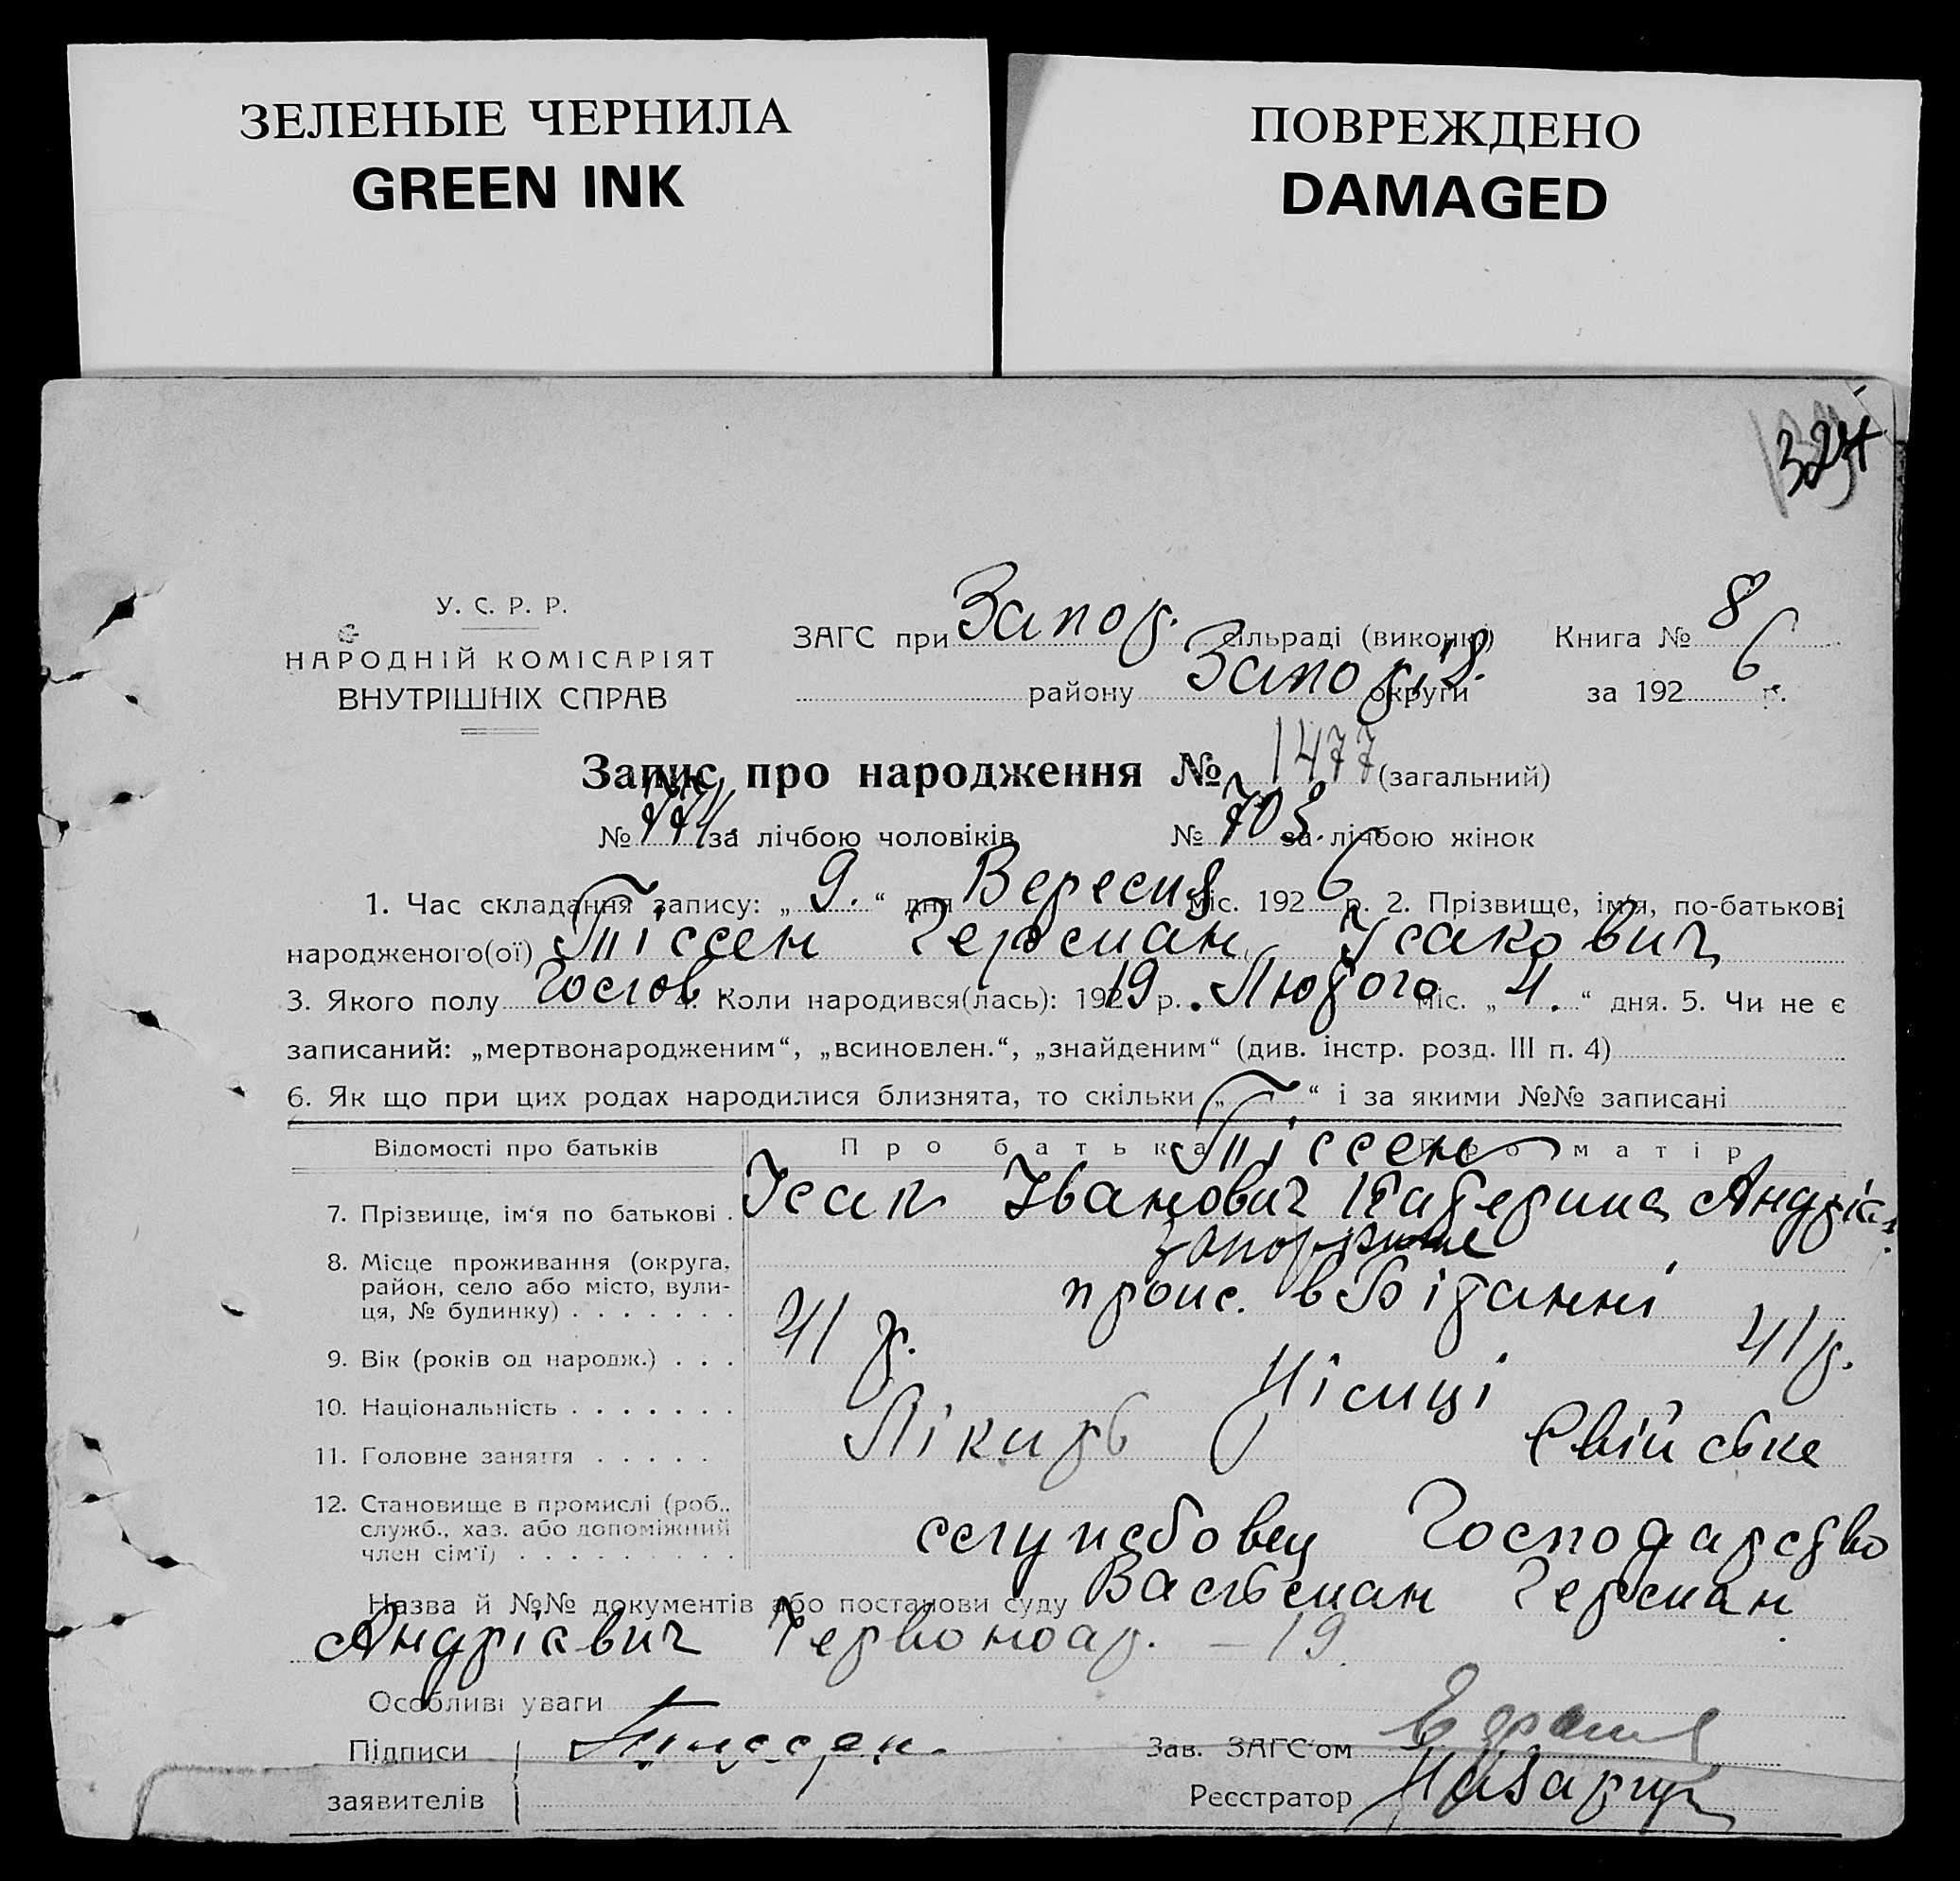 ЗЕЛЕНЫЕ ЧЕРНИЛА
GREEN INK
ПОВРЕЖДЕНО
DAMAGED
324
У. С. Р. Р.
НАРОДНІЙ КОМІСАРІЯТ
ВНУТРІШНІХ СПРАВ
ЗАГС при Запор. сільраді (виконк.) Книга № 8
району Запоріз. округи за 1926 р.
Запис про народження № 1477 (загальний)
№ 774 за лічбою чоловіків № 703. за лічбою жінок
1. Час складання запису: „ 9. “ дня Вересня міс. 1926 р. 2. Прізвище, ім'я, по-батькові
народженого(ої) Тіссен Герман Ісакович
3. Якого полу Чолов 4. Коли народився(лась): 1919 р. Лютого міс. „ 4. “ дня. 5. Чи не є
записаний: „мертвонародженим“, „всиновлен.“, „знайденим“ (див. інстр. розд. III п. 4)
6. Як що при цих родах народилися близнята, то скільки „ “ і за якими №№ записані
Відомості про батьків Про батька Про матір
Тіссен
7. Прізвище, ім'я по батькові . Ісак Іванович Катерина Андрія
8. Місце проживання (округа, район, село або місто, вулиця, № будинку) . . . . . . .
Запоріжже
прож. в
9. Вік (років од народж.) . . . 41 р. 41 р.
10. Національність . . . . . . . Німці
11. Головне заняття . . . . . Лікарь Свійське
12. Становище в промислі (роб., служб., хаз. або допоміжний член сім'ї) . . . . . . . . .
службовец Господарство
Назва й №№ документів або постанови суду Вальман Герман
Андрієвич Червоноар. — 19
Особливі уваги
Підписи Тиссен. Зав. ЗАГС'ом
заявителів Реєстратор